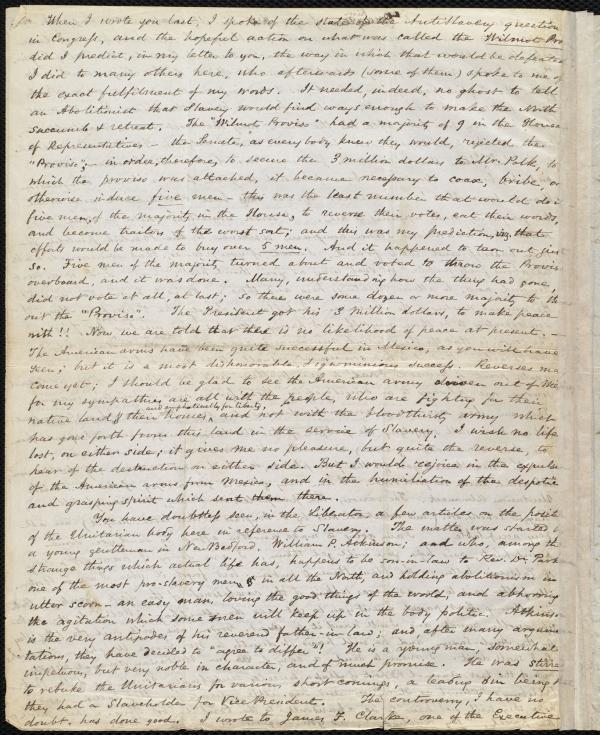 When I wrote you last, I spoke of the state of the Anti Slavery question
in Congress, and the hopeful action on what was called the Wilmot Pro
did I predict, in my letter to you, the way in which that would be defeated
I did to many others here, who afterwards (some of them) spoke to me of
the exact fulfilment of my words. It needed, indeed, no ghost to tell
an Abolitionist that Slavery would find ways enough to make the North
succumb & retreat. The "Wilmot Proviso" had a majority of 9 in the House
of Representatives – the Senate, as every body knew they would, rejected the
"Proviso"; – in order, therefore, to secure the 3 million dollars to Mr. Polk, to
which the proviso was attached, it became necessary to coax, bribe, or
otherwise induce five men – this was the least number that would do it
five men, of the majority in the House, to reverse their votes, eat their words,
and become traitors of the worst sort; and this was my prediction, viz. that
efforts would be made to buy over 5 men. And it happened to turn out just
so. Five men of the majority turned about and voted to throw the Proviso
overboard, and it was done. Many, understanding how the thing had gone,
did not vote at all, at last; so there were some dozen or more majority to th
out the "Proviso". The President got his 3 Million dollars, to make peace
with!! Now we are told that there is no likelihood of peace at present. –
The American arms have been quite successful in Mexico, as you will have
seen; but it is a most dishonorable, & ignominious success. Reverses ma
come yet; I should be glad to see the American army driven out of Mex
for my sympathies are all with the people, who are fighting for their
native land & their homes, and emphatically for liberty, and not with the bloodthirsty army which
has gone forth from this land in the service of Slavery. I wish no life
lost, on either side; it gives me no pleasure, but quite the reverse, to
hear of the destruction on either side. But I would rejoice in the expuls
of the American arms from Mexico, and in the humiliation of the despotic
and grasping spirit which sent them there.
You have doubtless seen, in the Liberator, a few articles on the posit
of the Unitarian body here in reference to Slavery. The matter was started b
a young gentleman in New Bedford, William P. Atkinson; and who, among th
strange things which actual life has, happens to be son-in-law to Rev. Dr. Park
one of the most pro-slavery men in all the North, and holding abolitionism in
utter scorn – an easy man, loving the good things of the world; and abhorring
the agitation which some men will keep up in the body politic. Atkins
is the very antipodes of his reverend father-in-law; and after many argum
tations, they have decided to "agree to differ"! He is a young man, somewhat
impetuous, but very noble in character, and of much promise. He was stirre
to rebuke the Unitarians for various short comings, a leading sin being that
they had a Slaveholder for Vice President. The controversy, I have no
doubt, has done good. I wrote to James F. Clarke, one of the Executive